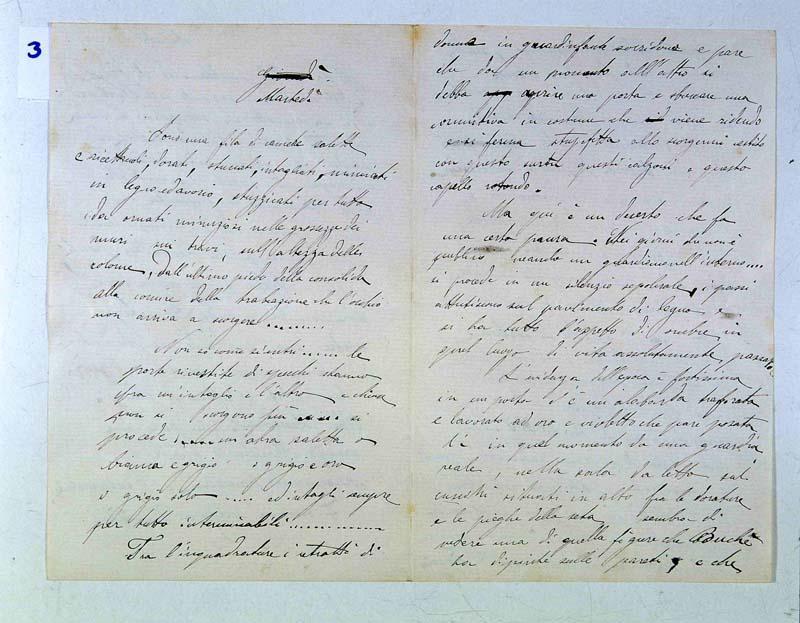 3
Martedì
Sono una fila di camere salette
e ricettacoli, dorati, stuccati, intagliati, miniati
in legno ed avorio, stuzzicati per tutto
idei ornati minuziosi nelle grossezze dei
muri sui travi, sull'altezza delle
colonne, dall'ultimo piede della consolida
alla cornice della trabeazione che l'occhio
non arriva a sorgere ........
Non si come si entri ...... le
porte rivestite di specchi stanno
fra un'intaglio e l'altro e chiuse
non si sorgono più .... si
procede .... un'altra saletta o
bianca e grigio o grigio e oro
o grigio solo ..... ed intagli sempre
per tutto interminabili ..............
Tra l'inquadrature i ritratti di
donne in guardinfante sorridono e pare
che da un momento all'altro si
debba aprire una porta e sboccare una
comitiva in costume che viene ridendo
e si ferma stupefatta allo scorgermi vestito
con questo questi calzoni e questo
capello rotondo.
Ma qui è un deserto che fa
una certa paura. Nei giorni che non è
pubblico mando un guardiano nell'interno....
si procede in un silenzio sepolcrale, i passi
attutiscono sul pavimento di legno e
si ha tutto l'aspetto di ombre in
quel luogo di vita assolutamente passata
L'evidenza dell'epoca è fortissima
in un posto c'è un'alabarda traforata
e lavorata ad oro e violetto che pare posata
lì in quel momento da una guardia
reale, nella sala da letto sul
cuscini situati in alto fra le dorature
e le pieghe della seta sembra di
vedere una di quelle figure che Bouché
ha dipinte sulle pareti e che